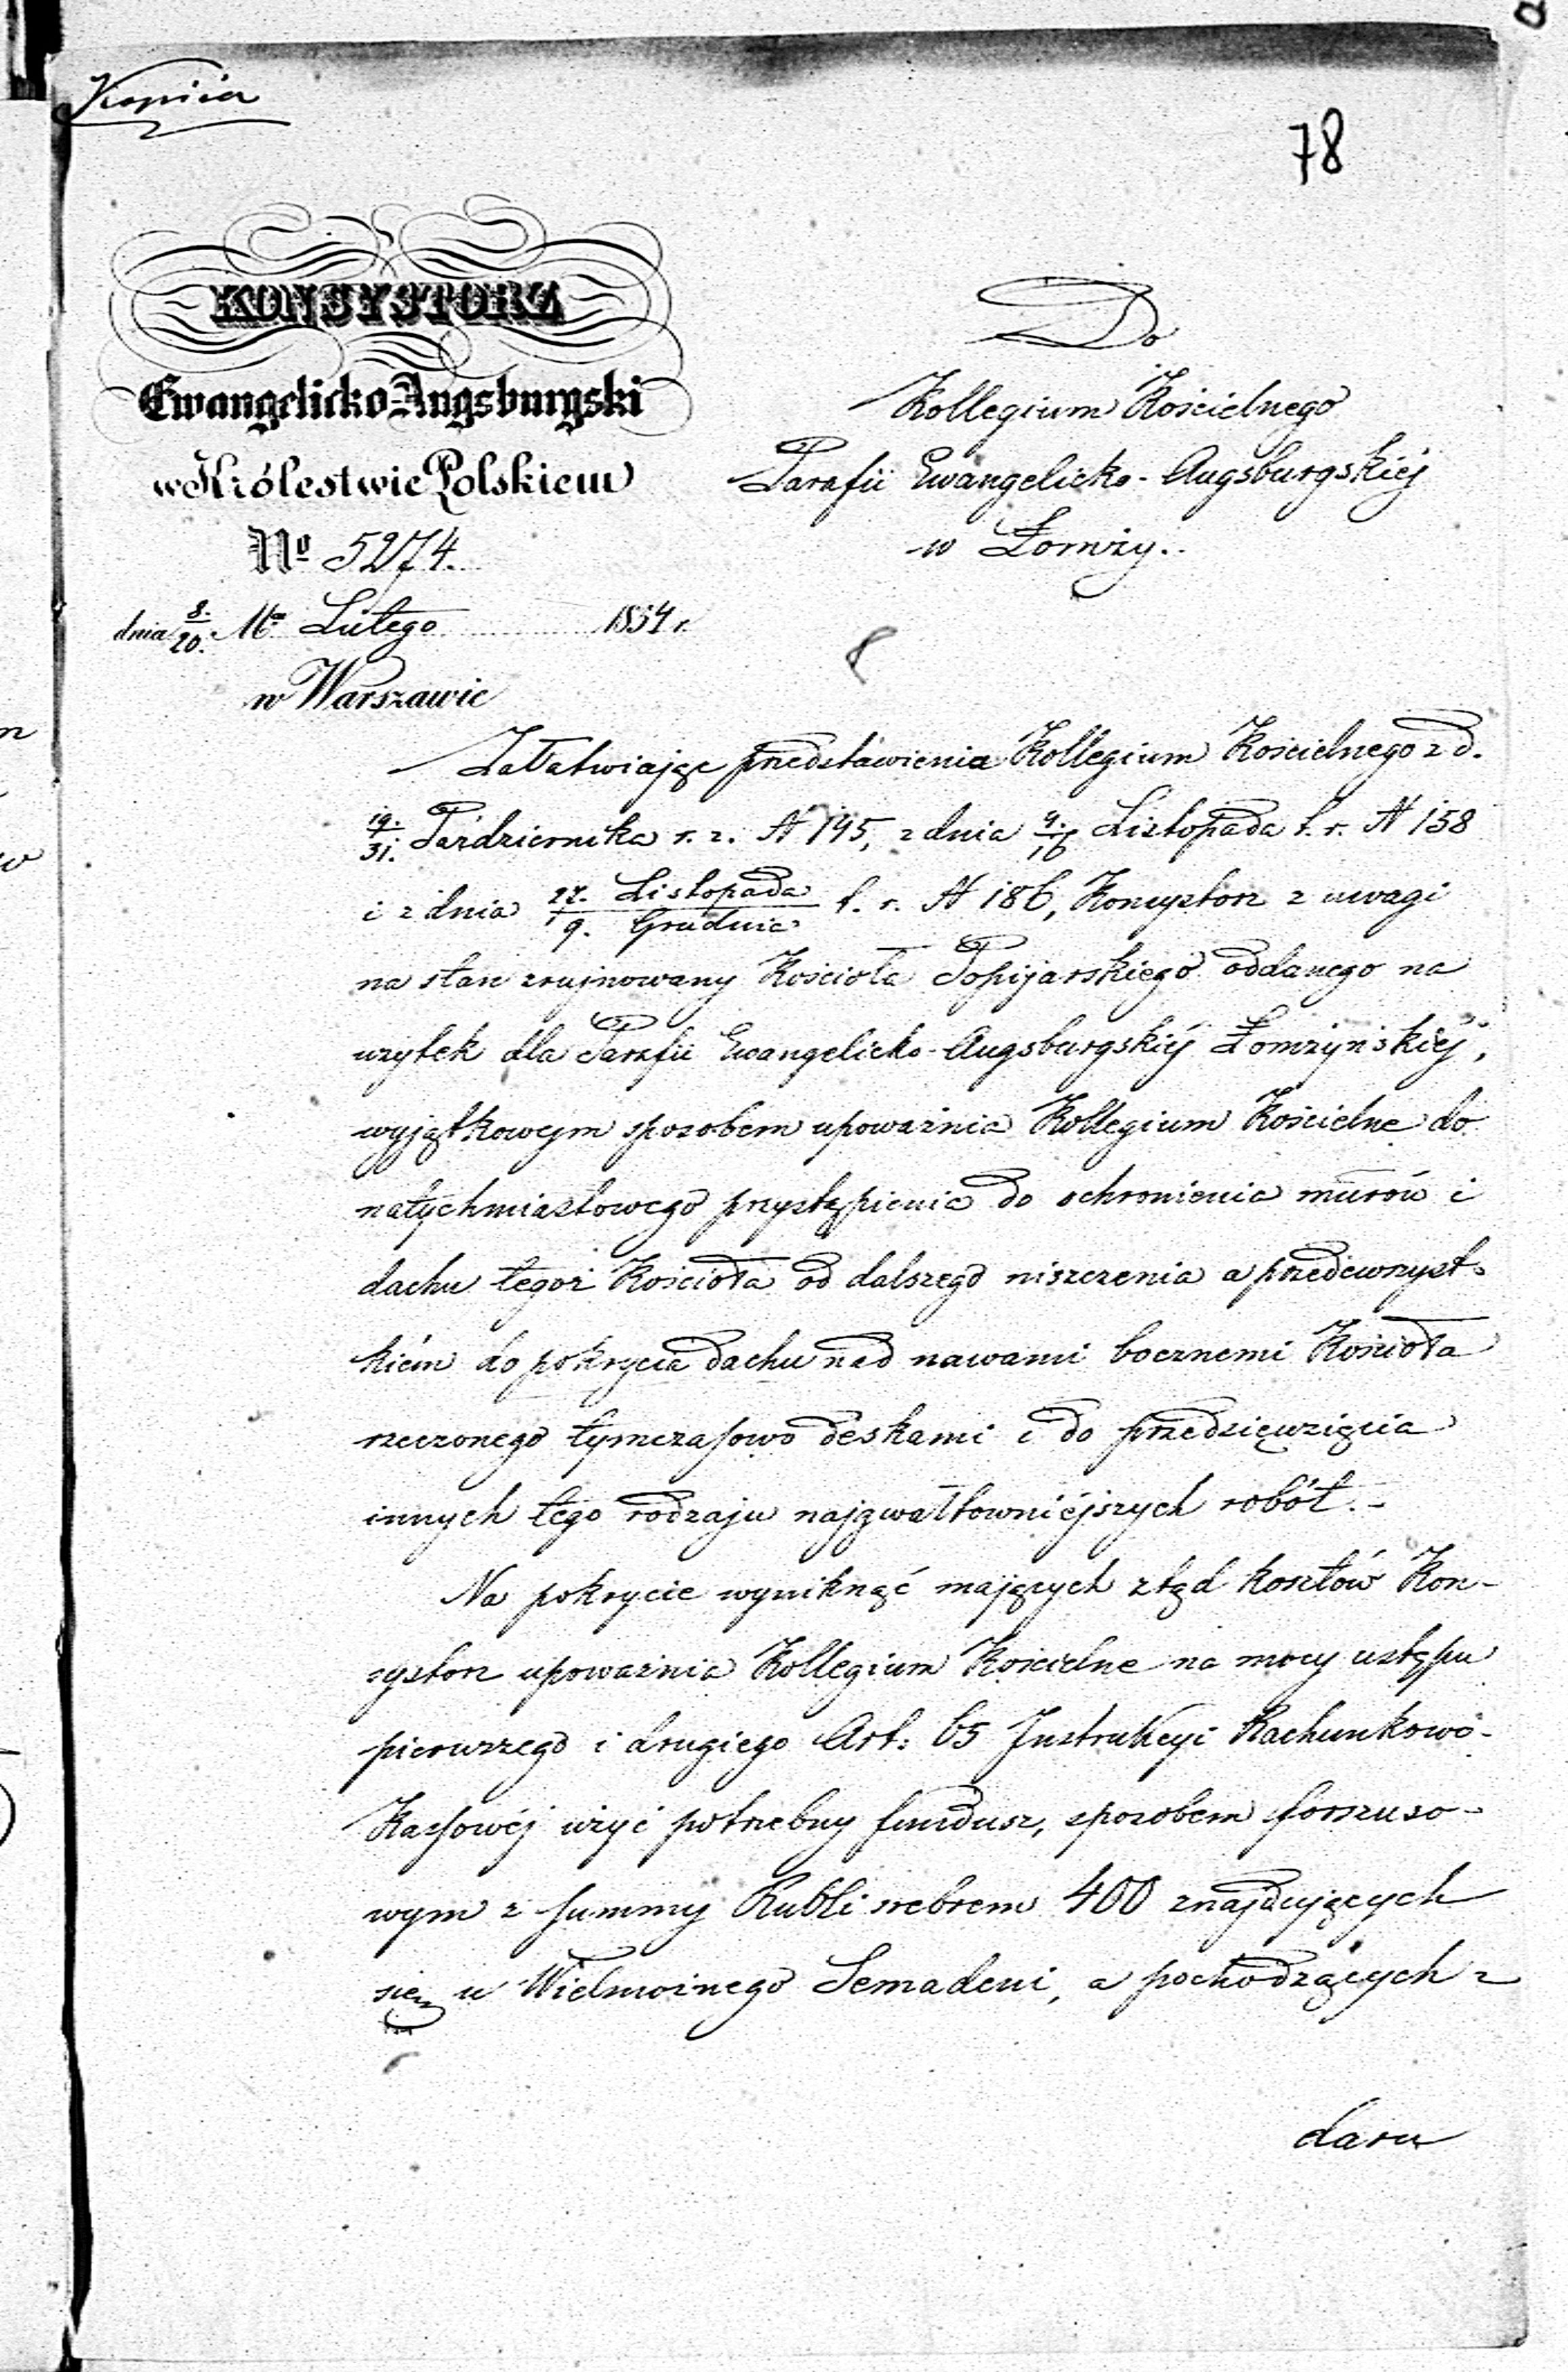 Kopiia
78
KONSYSTORZ
Ewangelicko Augsburgski
w Królestwie Polskiem
No 5274.
dnia 8./20. Mca Lutego 1854 r.
w Warszawie
Do
Kollegium Kościelnego
Parafii Ewangelicko-Augsburgskiéj
w Łomży.
Załatwiając przedstawienia Kollegium Kościelnego z d.
19./31. Października r. z. N 145, z dnia 4./16 Listopada t. r. N 158
i z dnia 27. Listopada/9. Grudnia t. r. N 186, Konsystorz z uwagi
na stan zrujnowany Kościoła Popijarskiego oddanego na
użytek dla Parafii Ewangelicko-Augsburgskiéj Łomżyńskiéj,
wyjątkowym sposobem upoważnia Kollegium Kościelne do
natychmiastowego przystąpienia do ochronienia murów i
dachu tegoż Kościoła od dalszego niszczenia a przedewszyst-
kiém do pokrycia dachu nad nawami bocznemi Kościoła
rzeczonego tymczasowo deskami i do przedsięwzięcia
innych tego rodzaju najgwałtowniéjszych robót.-
Na pokrycie wyniknąć mających ztąd kosztów Kon-
systorz upoważnia Kollegium Kościelne na mocy ustępu
pierwszego i drugiego Art: 65 Instrukcyi Rachunkowo-
Kassowéj użyć potrzebny fundusz, sposobem forszuso-
wym z summy Rubli srebrem 400 znajdujących
się u Wielmożnego Semadeni, a pochodzących z
daru